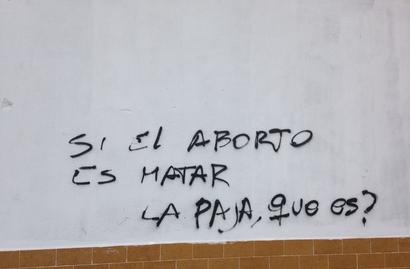 SI El ABORTO
ES MATAR
LA PAJA, QUE ES?